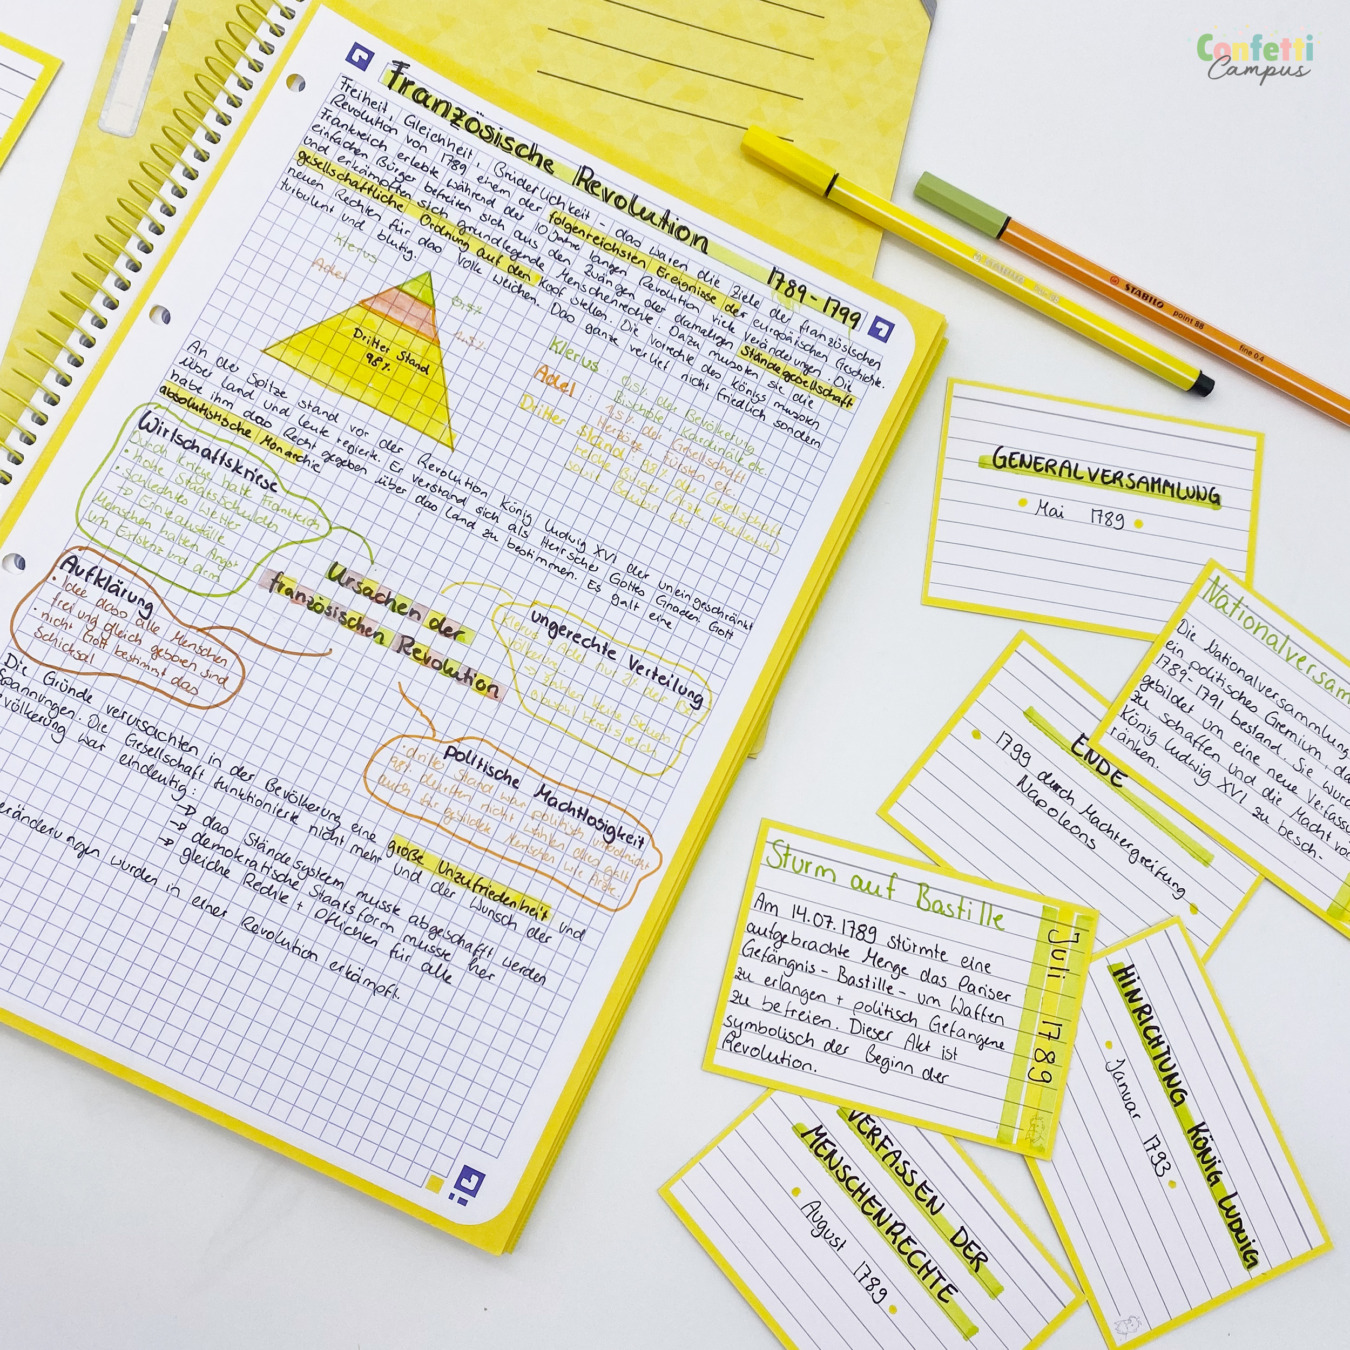 Confetti
Campus
Französische Revolution
1789-1799
Freiheit, Gleichheit, Brüderlichkeit - das waren die Ziele der französischen
Revolution von 1789 einem der folgenreichsten Ereignisse der europäischen Geschichte.
Frankreich erlebte während der 10 Jahre langen Revolution viele Veränderungen. Die
einfachen Bürger befreiten sich aus den Zwängen der damaligen Ständegesellschaft
und erkämpften sich grundlegende Menschenrechte. Dazu mussten sie die
gesellschaftliche Ordnung auf den Kopf stellen. Die Vorrechte des Königs mussten
neuen Rechten für das Volk weichen. Das ganze verlief nicht friedlich sondern
turbulent und blutig.
Klerus
Adel
0,5%
Dritter Stand
98%
Klerus: 0,5% der Bevölkerung
Bischöfe, Kardinäle, etc.
Adel: 1,5% der Gesellschaft
Herzöge, Fürsten, etc.
Dritter Stand: 98% der Gesellschaft
reiche Bürger
sowie Bauern etc.
An der Spitze stand vor der Revolution König Ludwig XVI der uneingeschränkt
über Land und Leute regierte. Er verstand sich als Herrscher Gottes Gnaden. Gott
habe ihm das Recht gegeben über das Land zu bestimmen. Es galt eine
absolutistische Monarchie
Wirtschaftskriese
Durch Kriege hatte Frankreich
• hohe Staatsschulden
• schlechtes Wetter
→ Ernteausfälle
Menschen hatten Angst
um Existenz und
Aufklärung
• Idee dass alle Menschen
frei und gleich geboren sind
• nicht Gott bestimmt das
Schicksal
Ursachen der
französischen Revolution
ungerechte Verteilung
Klerus + Adel nur 2% der
→ zahlen keine Steuern
obwohl bereits reich
Politische Machtlosigkeit
• dritter Stand war politisch
98% durften nicht wählen dies galt
auch für gebildete Menschen wie Ärzte
Die Gründe verursachten in der Bevölkerung eine große Unzufriedenheit und
Spannungen. Die Gesellschaft funktionierte nicht mehr und der Wunsch der
Bevölkerung war eindeutig:
→ das Ständesystem musste abgeschafft werden
→ demokratische Staatsform musste her
→ gleiche Rechte + Pflichten für alle
wurden in einer Revolution erkämpft.
STABILO
point 88
fine 0,4
GENERALVERSAMMLUNG
• Mai 1789 •
Die Nationalversammlung
ein politisches Gremium,
1789-1791 bestand. Sie
gebildet um eine neue
zu schaffen und die Macht
König Ludwig XVI zu besch-
ränken.
ENDE
• 1799 durch Machtergreifung
Napoleons •
Sturm auf Bastille
Am 14.07.1789 stürmte eine
aufgebrachte Menge das Pariser
Gefängnis - Bastille - um Waffen
zu erlangen + politisch Gefangene
zu befreien. Dieser Akt ist
symbolisch der Beginn der
Revolution.
Juli 1789
HINRICHTUNG KÖNIG LUDWIG
• Januar 1793 •
VERFASSEN DER
MENSCHENRECHTE
• August 1789 •